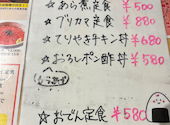 ☆あら煮定食 ¥500
☆ブリカマ定食 ¥880
☆てりやきチキン丼 ¥680
☆おろしポン酢丼 ¥580
☆おでん定食 ¥580